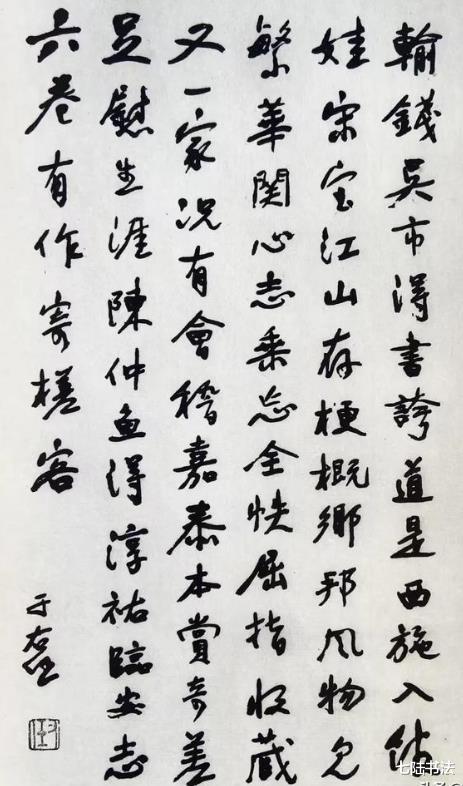 輸錢吳市得書誇道是西施入館
娃宋室江山存梗概鄉邦风物見
繁華関心志乘忘全帙屈指收藏
又一家況有會稽嘉泰本賞奇差
足慰生涯陳仲魚得淳祐臨安志
六卷有作寄槎客
于右任
七陆书法